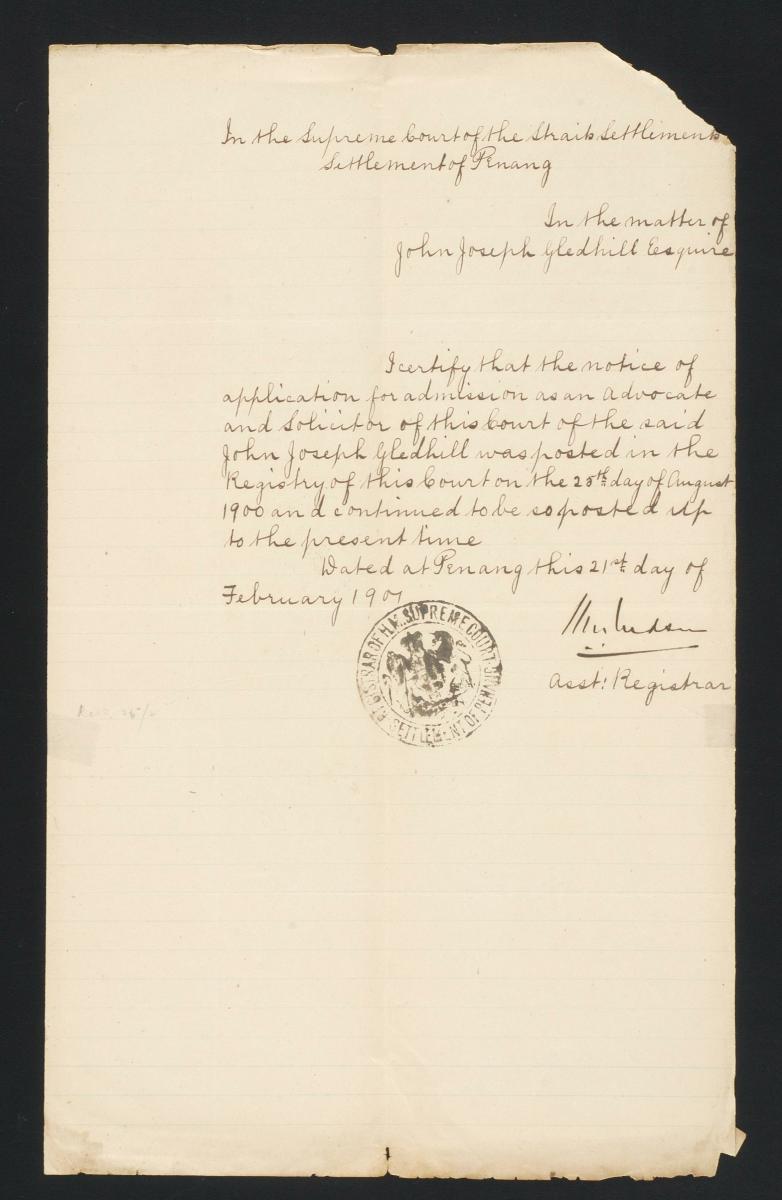 In the Supreme Court of the Straits Settlements
Settlement of Penang
In the matter of
John Joseph Gledhill Esquire
I certify that the notice of
application for admission as an Advocate
and Solicitor of this Court of the said
John Joseph Gledhill was posted in the
Registry of this Court on the 28th day of August
1900 and continued to be so posted up
to the present time
Dated at Penang this 21st day of
February 1901
Asst: Registrar
REGISTRAR OF H.M. SUPREME COURT
SETTLEMENT OF PENANG